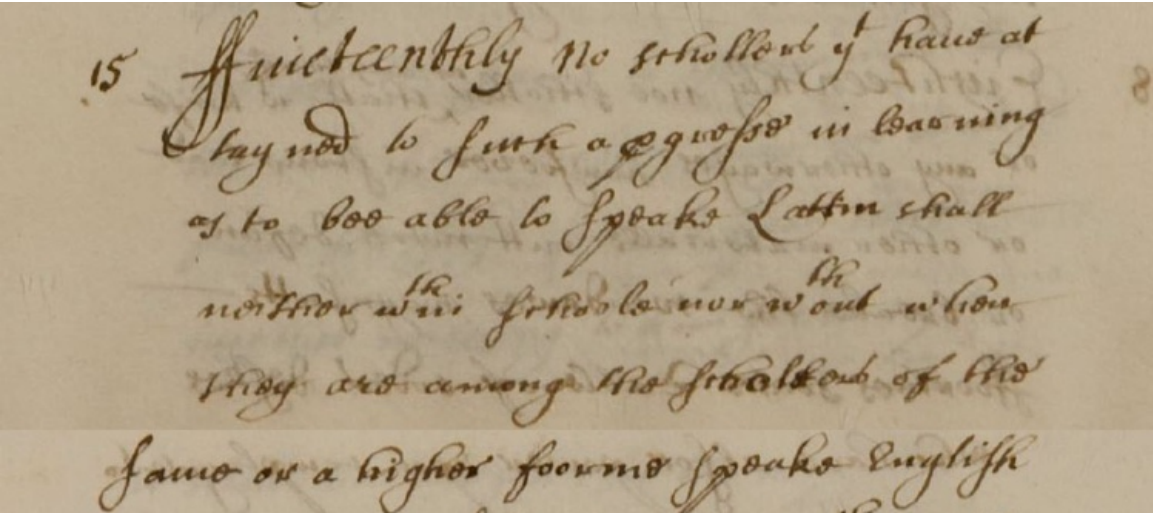 15 ffiueteenthly No schollers yt haue at
tayned to such a pgresse in learning
as to bee able to speake Lattin shall
neither wthin schoole nor wthout when
they are among the schollers of the
same or a higher foorme speake English